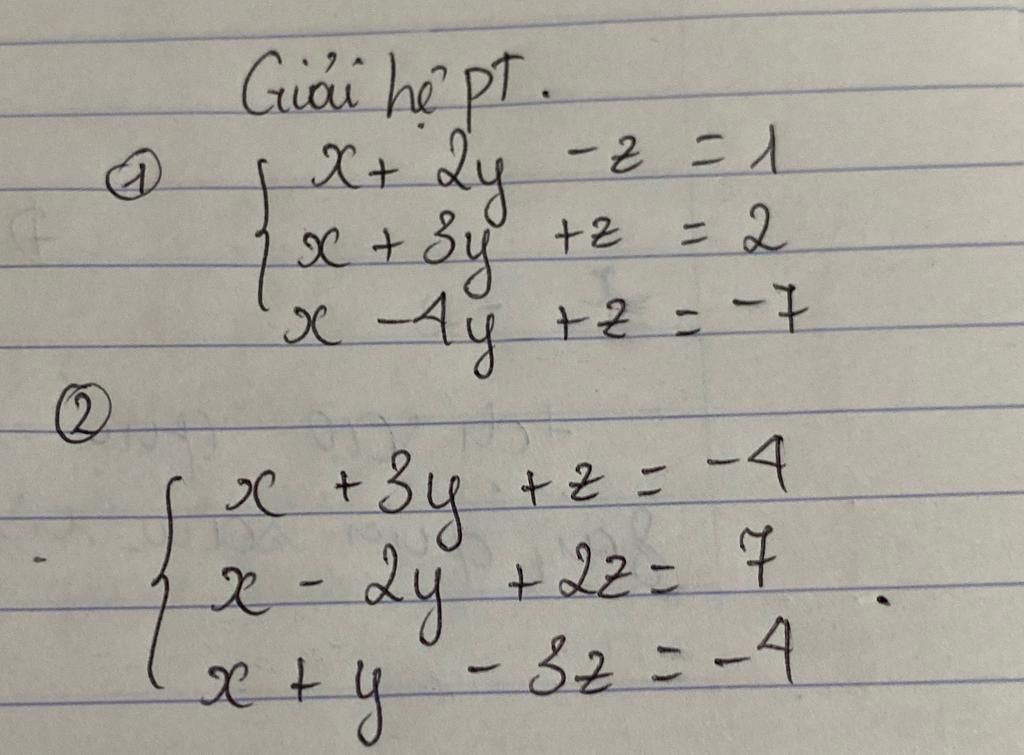 Giải hệ pT.
① x + 2y - z = 1
x + 3y + z = 2
x - 4y + z = -7
②
x + 3y + z = -4
x - 2y + 2z = 7
x + y - 3z = -4